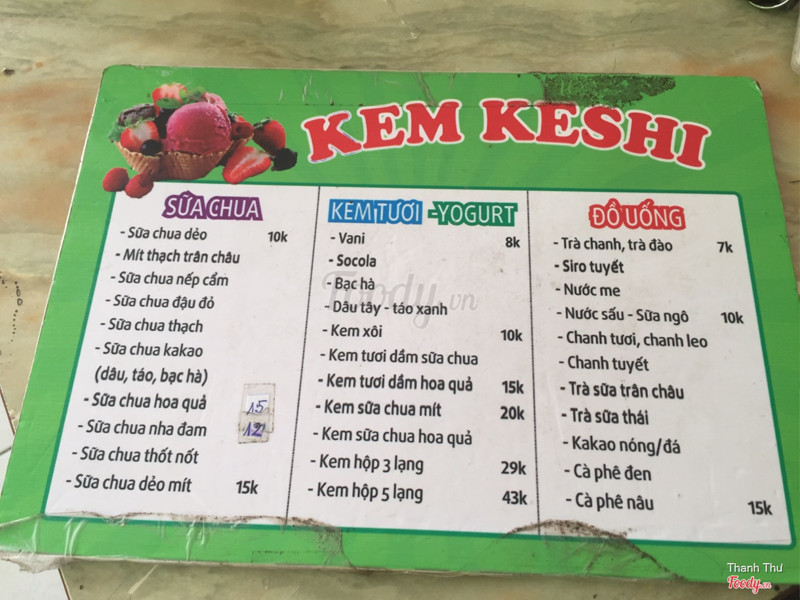 KEM KESHI
SỮA CHUA
- Sữa chua dẻo 10k
- Mít thạch trân châu
- Sữa chua nếp cẩm
- Sữa chua đậu đỏ
- Sữa chua thạch
- Sữa chua kakao
(dâu, táo, bạc hà)
- Sữa chua hoa quả 15
- Sữa chua nha đam 12
- Sữa chua thốt nốt
- Sữa chua dẻo mít 15k
KEM TƯƠI -YOGURT
- Vani 8k
- Socola
- Bạc hà
- Dâu tây - táo xanh
- Kem xôi 10k
- Kem tươi dầm sữa chua
- Kem tươi dầm hoa quả 15k
- Kem sữa chua mít 20k
- Kem sữa chua hoa quả
- Kem hộp 3 lạng 29k
- Kem hộp 5 lạng 43k
ĐỒ UỐNG
- Trà chanh, trà đào 7k
- Siro tuyết
- Nước me
- Nước sấu - Sữa ngô 10k
- Chanh tươi, chanh leo
- Chanh tuyết
- Trà sữa trân châu
- Trà sữa thái
- Kakao nóng/đá
- Cà phê đen
- Cà phê nâu 15k
Foody.vn
Thanh Thư
Foody.vn